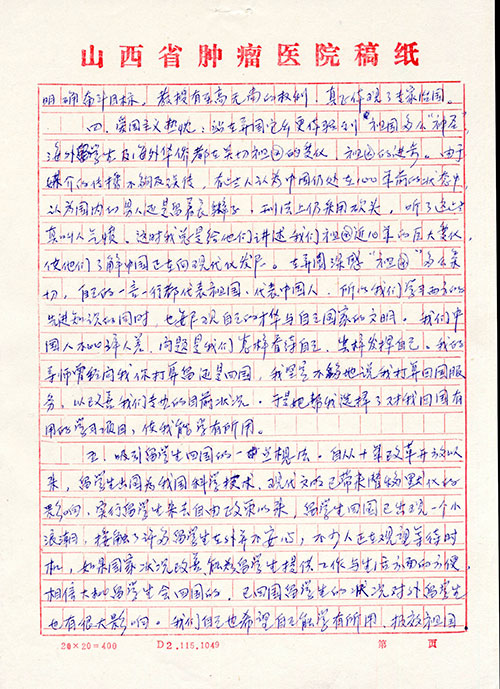 山西省肿瘤医院稿纸
明确奋斗目标。教授有至高无尚的权利,真正体现了专家治国。
四、爱国主义热忱:站在异国它乡更体验到"祖国多么"神圣",
海外留学生及海外华侨都在关切祖国的变化,祖国的进步。由于
媒介的传播不够及误传,有些人认为中国仍处在100年前的状态中,
认为国内的男人还是留着长辫子,刑法上仍采用砍头,听了这些
真叫人气愤,这时我总是给他们讲述我们祖国近10年的巨大变化,
使他们了解中国正在向现代化发展。在异国深感"祖国"多么亲
切,自己的一言一行都代表祖国、代表中国人,所以我们学习西方的
先进知识的同时,也要体现自己的才华与自己国家的文明。我们中
国人不比外人差,问题是我们怎样看待自己,怎样发挥自己。我的
导师曾经问我你打算留还是回国,我坚定不移地说我打算回国服
务,以改善我们专业的目前状况。于是她帮我选择了对我回国有
用的学习项目,使我能学有所用。
五、吸引留学生回国的一些想法。自从十年改革开放以
来,留学生出国为我国科学技术、现代文明已带来潜移默化的
影响,实行留学生来去自由政策以来,留学生回国已出现一个小
浪潮,接触了许多留学生在外并不安心,不少人正在观望等待时
机,如果国家状况改善,能为留学生提供工作与生活方面的方便,
相信大批留学生会回国的,已回国留学生的状况对外留学生
也有很大影响。我们自己也希望自己能学有所用,报效祖国
20×20=400 D2.115.1049 第 页